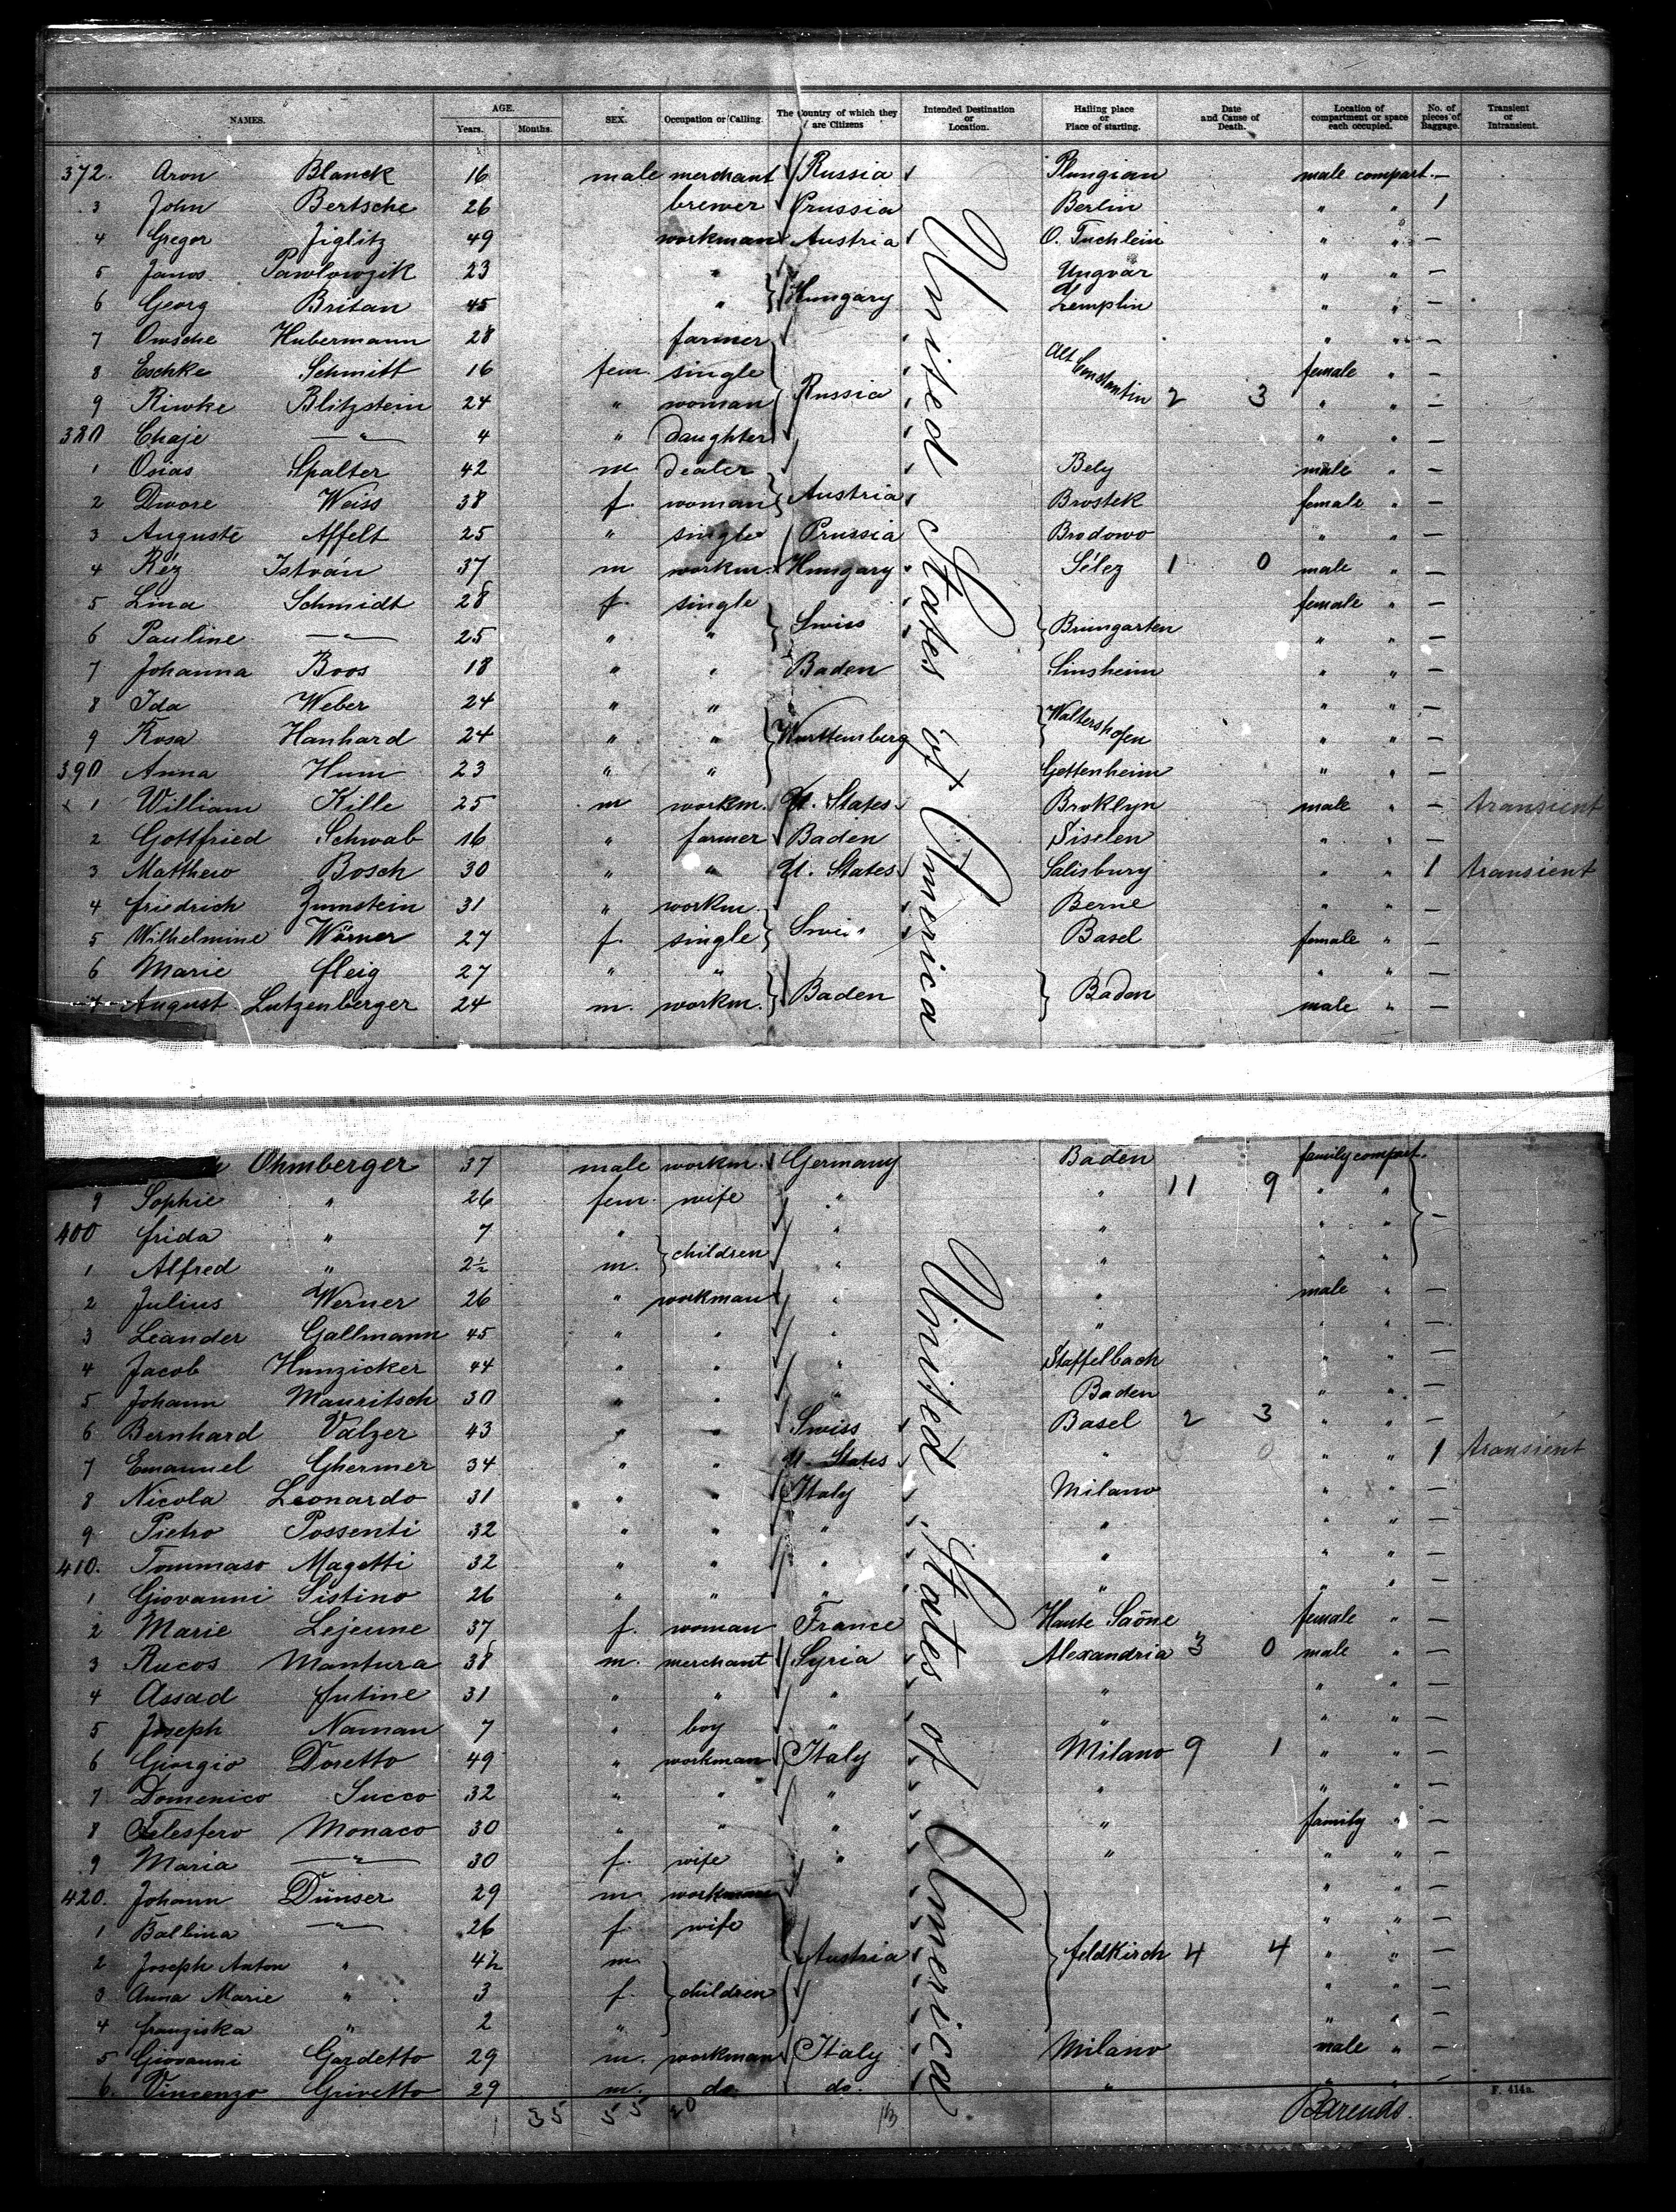 NAMES. AGE. Years. Months. SEX. Occupation or Calling. The Country of which they are Citizens Intended Destination or Location. Hailing place or Place of starting. Date and Cause of Death. Location of compartment or space each occupied. No. of pieces of Baggage. Transient or Intransient.
372. Aron Blanck 16 male merchant Russia Plungian male compart. —
3 John Bertsche 26 brewer Prussia Berlin " " 1
4 Gregor Jiglitz 49 workman Austria O. Tuchlein " " —
5 Janos Pawlowzik 23 " Ungvár " " —
6 Georg Britan 45 " Hungary Zemplin " " —
7 Owsche Hubermann 28 farmer " " —
8 Eschke Schmitt 16 fem. single Alt Constantin female " —
9 Riwke Blitzstein 24 " woman Russia 2 3 " " —
380 Chaje —"— 4 " daughter " " —
1 Osias Spalter 42 m dealer Bely male " —
2 Dwore Weiss 38 f. woman Austria Brostek female " —
3 Auguste Affelt 25 " single Prussia Brodowo " " —
4 Réz István 37 m workm. Hungary Sélez 1 0 male " —
5 Lina Schmidt 28 f. single Swiss female " —
6 Pauline —"— 25 " " Bremgarten " " —
7 Johanna Boos 18 " " Baden Sinsheim " " —
8 Ida Weber 24 " " " " —
9 Rosa Hanhard 24 " " Württemberg Waltershofen " " —
390 Anna Humi 23 " " Gettenheim " " —
x 1 William Kille 25 m workm. U. States Broklyn male " — transient
2 Gottfried Schwab 16 " farmer Baden Siselen " " —
3 Matthew Bosch 30 " " U. States Salisbury " " 1 transient
4 Friedrich Zumstein 31 " workm. Berne " " —
5 Wilhelmine Wörner 27 f. single Swiss Basel female " —
6 Marie Fleig 27 " " " " —
7 August Lutzenberger 24 m. workm. Baden Baden male " —
United States of America
Ohmberger 37 male workm. Germany Baden family compart.
9 Sophie " 26 fem. wife " " 11 9 " " —
400 Frida " 7 " children " " " "
1 Alfred " 2½ m. " " " "
2 Julius Werner 26 " workman " " male " —
3 Leander Gallmann 45 " " " " " " —
4 Jacob Hunzicker 44 " " " Staffelbach " " —
5 Johann Mauritsch 30 " " " Baden " " —
6 Bernhard Valzer 43 " " Swiss Basel 2 3 " " —
7 Emanuel Ghermer 34 " " U. States " 0 " " 1 transient
8 Nicola Leonardo 31 " " Italy Milano " " —
9 Pietro Possenti 32 " " " " " " —
410. Tommaso Magetti 32 " " " " " " —
1 Giovanni Sistino 26 " " " " " " —
2 Marie Lejeune 37 f. woman France Haute Saône female " —
3 Rucos Mantura 38 m. merchant Syria Alexandria 3 0 male " —
4 Assad Futine 31 " " " " " " —
5 Joseph Naman 7 " boy " " " " —
6 Giorgio Doretto 49 " workman Italy Milano 9 1 " " —
7 Domenico Succo 32 " " " " " " —
8 Telesfero Monaco 30 " " " " family " —
9 Maria —"— 30 f. wife " " " " —
420. Johann Dünser 29 m. workman " " —
1 Balbina —"— 26 f. wife " " —
2 Joseph Anton " 4½ m. Austria Feldkirch 4 4 " " —
3 Anna Marie " 3 f. children " " —
4 Franziska " 2 " " " —
5 Giovanni Gardetto 29 m. workman Italy Milano male " —
6. Vincenzo Grivetto 29 m. do. do. " " " —
United States of America
F. 414a.
1 35 55 20 113